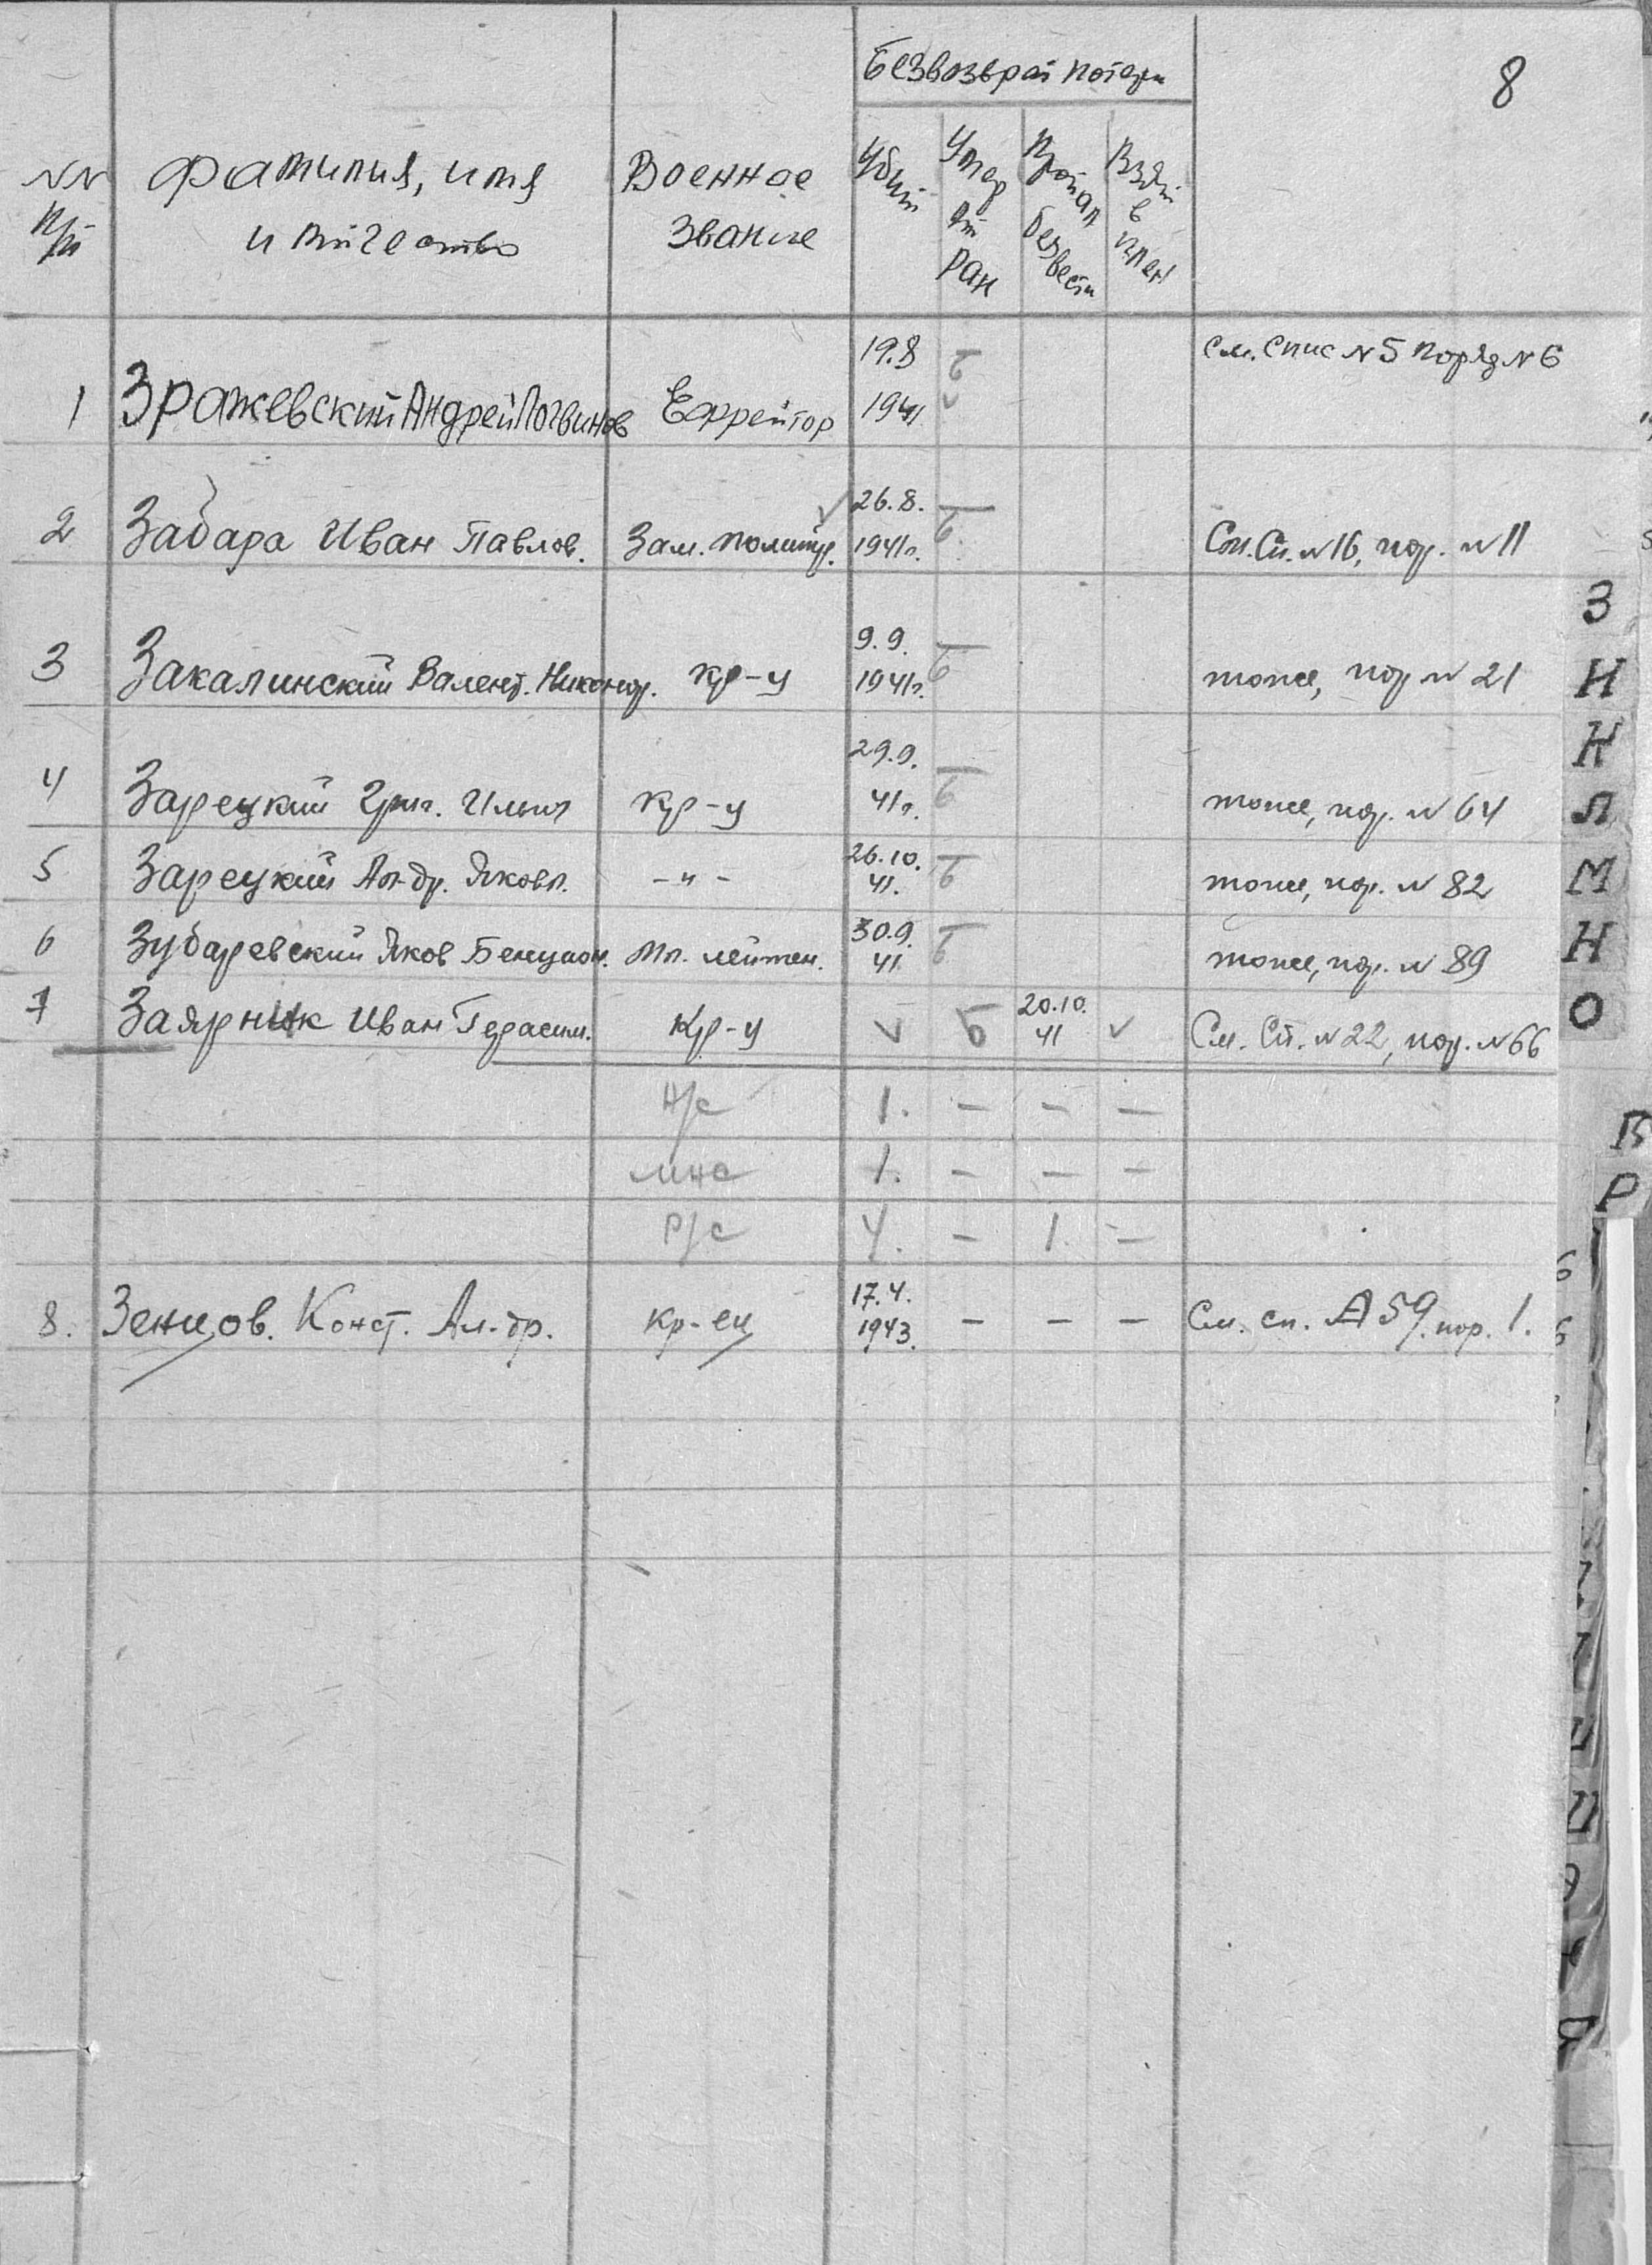 8
Безвозврат потери
NN п/п
фамилия, имя
и отчество
Военное
звание
Убит
Умер от ран
Пропал без вести
Взят в плен
1 Зражевский Андрей Логвинов Ефрейтор 19.8 1941 б см. спис N 5 поряд N 6
2 Забара Иван Павлов. Зам. политр. 26.8. 1941г. б См. Сп. N 16, пор. N 11
3 Закалинский Валент. Никонор. кр-ц 9.9. 1941г. б тоже, пор N 21
4 Зарецкий Григ. Ильич кр-ц 29.9. 41г. б тоже, пор. N 64
5 Зарецкий Ал-др. Яковл. -"- 26.10. 41. б тоже, пор. N 82
6 Зубаревский Яков Бенцион. мл. лейтен. 30.9. 41. б тоже, пор. N 89
7 Заярник Иван Герасим. Кр-ц v б 20.10. 41 v См. Сп. N 22, пор. N 66
Н/с 1. — — —
мнс 1. — — —
Р/с 4. — 1. —
8. Зенцов. Конст. Ал-др. кр-ец 17.4. 1943. — — — См. сп. А 59. пор. 1.
З
И
К
Л
М
Н
О
Р